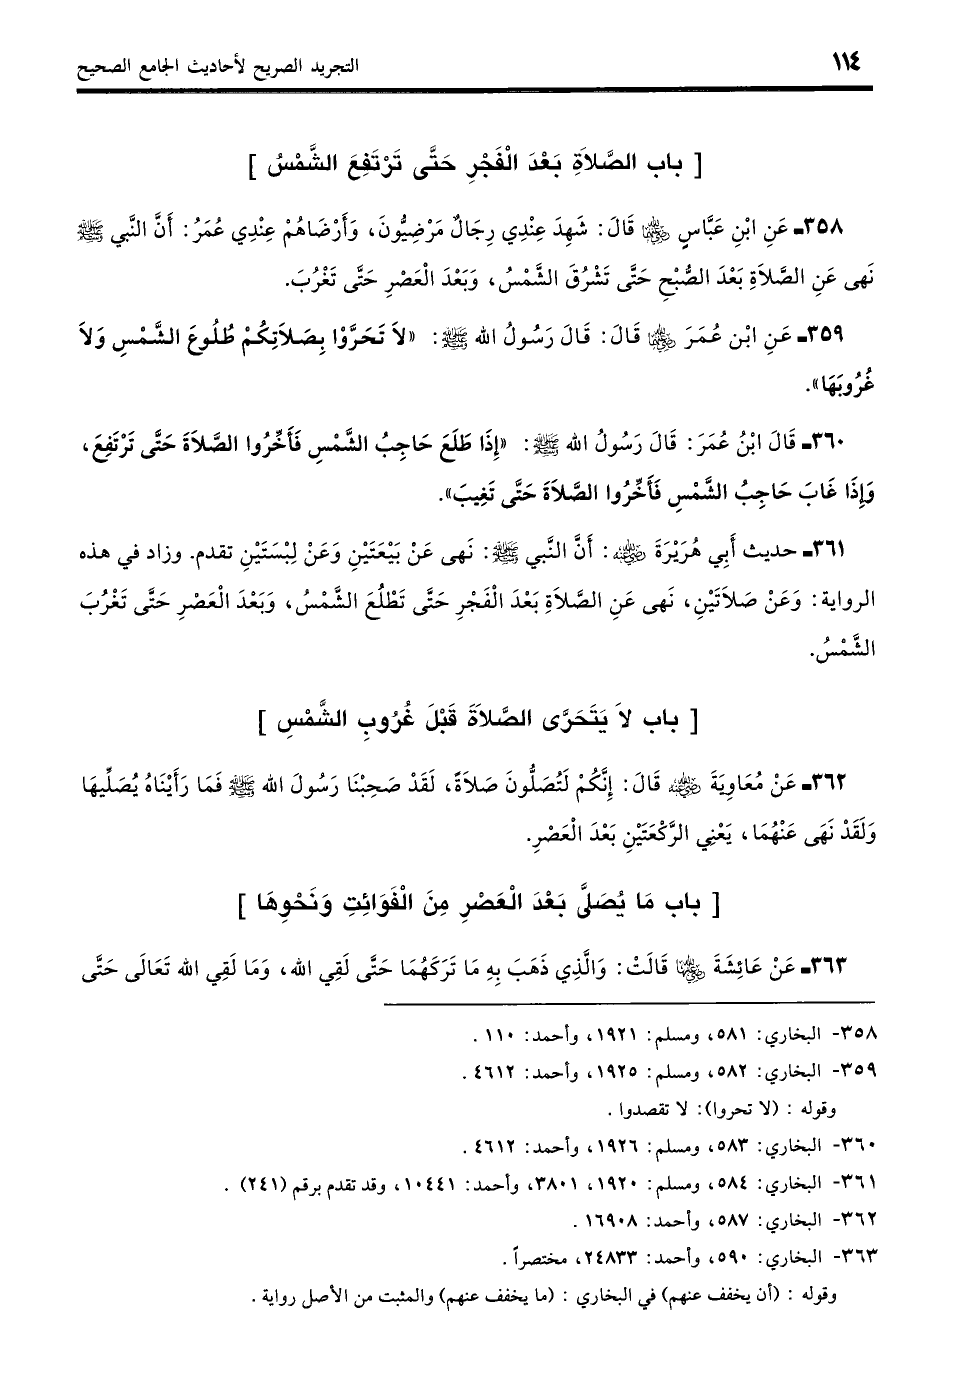 ١١٤ التجريد الصريح لأحاديث الجامع الصحيح
[ باب الصَّلاَةِ بَعْدَ الْفَجْرِ حَتَّى تَرْتَفِعَ الشَّمْسُ ]
٣٥٨ـ عَنِ ابْنِ عَبَّاسٍ رضي الله عنهما قَالَ: شَهِدَ عِنْدِي رِجَالٌ مَرْضِيُّونَ، وَأَرْضَاهُمْ عِنْدِي عُمَرُ: أَنَّ النَّبي ﷺ
نَهى عَنِ الصَّلاَةِ بَعْدَ الصُّبْحِ حَتَّى تَشْرُقَ الشَّمْسُ، وَبَعْدَ الْعَصْرِ حَتَّى تَغْرُبَ.
٣٥٩ـ عَنِ ابْنِ عُمَرَ رضي الله عنهما قَالَ: قَالَ رَسُولُ الله ﷺ: «لاَ تَحَرَّوْا بِصَلاَتِكُمْ طُلُوعَ الشَّمْسِ وَلاَ
غُرُوبَهَا».
٣٦٠ـ قَالَ ابْنُ عُمَرَ: قَالَ رَسُولُ الله ﷺ: «إِذَا طَلَعَ حَاجِبُ الشَّمْسِ فَأَخِّرُوا الصَّلاَةَ حَتَّى تَرْتَفِعَ،
وَإِذَا غَابَ حَاجِبُ الشَّمْسِ فَأَخِّرُوا الصَّلاَةَ حَتَّى تَغِيبَ».
٣٦١ـ حديث أَبِي هُرَيْرَةَ رضي الله عنه: أَنَّ النَّبي ﷺ: نَهى عَنْ بَيْعَتَيْنِ وَعَنْ لِبْسَتَيْنِ تقدم. وزاد في هذه
الرواية: وَعَنْ صَلاَتَيْنِ، نَهى عَنِ الصَّلاَةِ بَعْدَ الْفَجْرِ حَتَّى تَطْلُعَ الشَّمْسُ، وَبَعْدَ الْعَصْرِ حَتَّى تَغْرُبَ
الشَّمْسُ.
[ باب لاَ يَتَحَرَّى الصَّلاَةَ قَبْلَ غُرُوبِ الشَّمْسِ ]
٣٦٢ـ عَنْ مُعَاوِيَةَ رضي الله عنه قَالَ: إِنَّكُمْ لَتُصَلُّونَ صَلاَةً، لَقَدْ صَحِبْنَا رَسُولَ الله ﷺ فَمَا رَأَيْنَاهُ يُصَلِّيهَا
وَلَقَدْ نَهَى عَنْهُمَا، يَعْنِي الرَّكْعَتَيْنِ بَعْدَ الْعَصْرِ.
[ باب مَا يُصَلَّى بَعْدَ الْعَصْرِ مِنَ الْفَوَائِتِ وَنَحْوِهَا ]
٣٦٣ـ عَنْ عَائِشَةَ رضي الله عنها قَالَتْ: وَالَّذِي ذَهَبَ بِهِ مَا تَرَكَهُمَا حَتَّى لَقِي الله، وَمَا لَقِي الله تَعَالَى حَتَّى
٣٥٨- البخاري: ٥٨١، ومسلم: ١٩٢١، وأحمد: ١١٠ .
٣٥٩- البخاري: ٥٨٢، ومسلم: ١٩٢٥، وأحمد: ٤٦١٢ .
وقوله : (لا تحروا): لا تقصدوا .
٣٦٠- البخاري: ٥٨٣، ومسلم: ١٩٢٦، وأحمد: ٤٦١٢ .
٣٦١- البخاري: ٥٨٤، ومسلم: ١٩٢٠، ٣٨٠١، وأحمد: ١٠٤٤١، وقد تقدم برقم (٢٤١) .
٣٦٢- البخاري: ٥٨٧، وأحمد: ١٦٩٠٨ .
٣٦٣- البخاري: ٥٩٠، وأحمد: ٢٤٨٣٣، مختصراً .
وقوله : (أن يخفف عنهم) في البخاري : (ما يخفف عنهم) والمثبت من الأصل رواية .